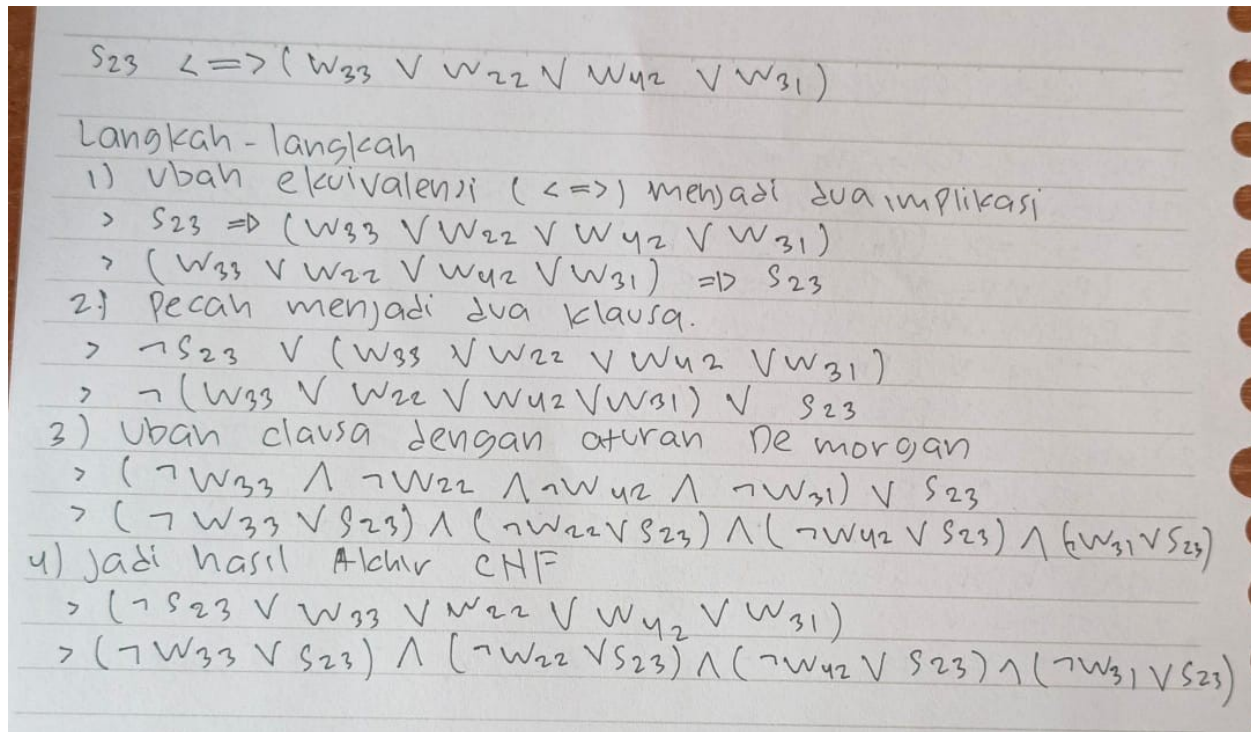 S23 <=> (W33 ∨ W22 ∨ W42 ∨ W31)
Langkah - langkah
1) Ubah ekuivalensi (<=>) menjadi dua implikasi
> S23 => (W33 ∨ W22 ∨ W42 ∨ W31)
> (W33 ∨ W22 ∨ W42 ∨ W31) => S23
2) Pecah menjadi dua klausa.
> ¬S23 ∨ (W33 ∨ W22 ∨ W42 ∨ W31)
> ¬(W33 ∨ W22 ∨ W42 ∨ W31) ∨ S23
3) Ubah clausa dengan aturan De morgan
> (¬W33 ∧ ¬W22 ∧ ¬W42 ∧ ¬W31) ∨ S23
> (¬W33 ∨ S23) ∧ (¬W22 ∨ S23) ∧ (¬W42 ∨ S23) ∧ (¬W31 ∨ S23)
4) Jadi hasil Akhir CNF
> (¬S23 ∨ W33 ∨ W22 ∨ W42 ∨ W31)
> (¬W33 ∨ S23) ∧ (¬W22 ∨ S23) ∧ (¬W42 ∨ S23) ∧ (¬W31 ∨ S23)